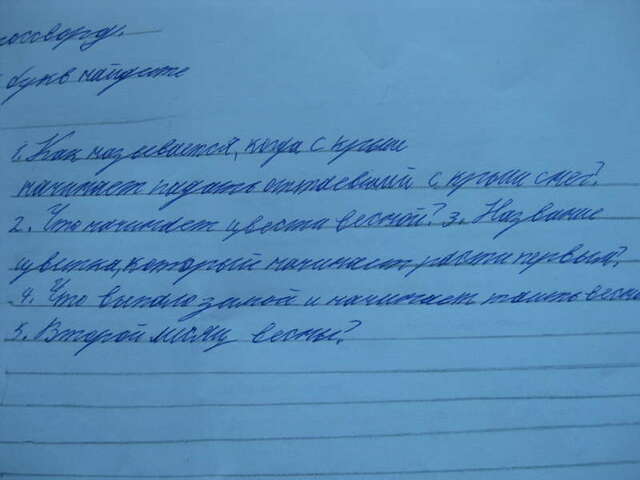 букв найдите
1. Как называется, когда с крыш
начинает падать оттаевший с крыши снег?
2. Что начинает цвести весной? 3. Название
цветка, который начинает расти первый?
4. Что выпало зимой и начинает таить весн
5. Второй месяц весны?